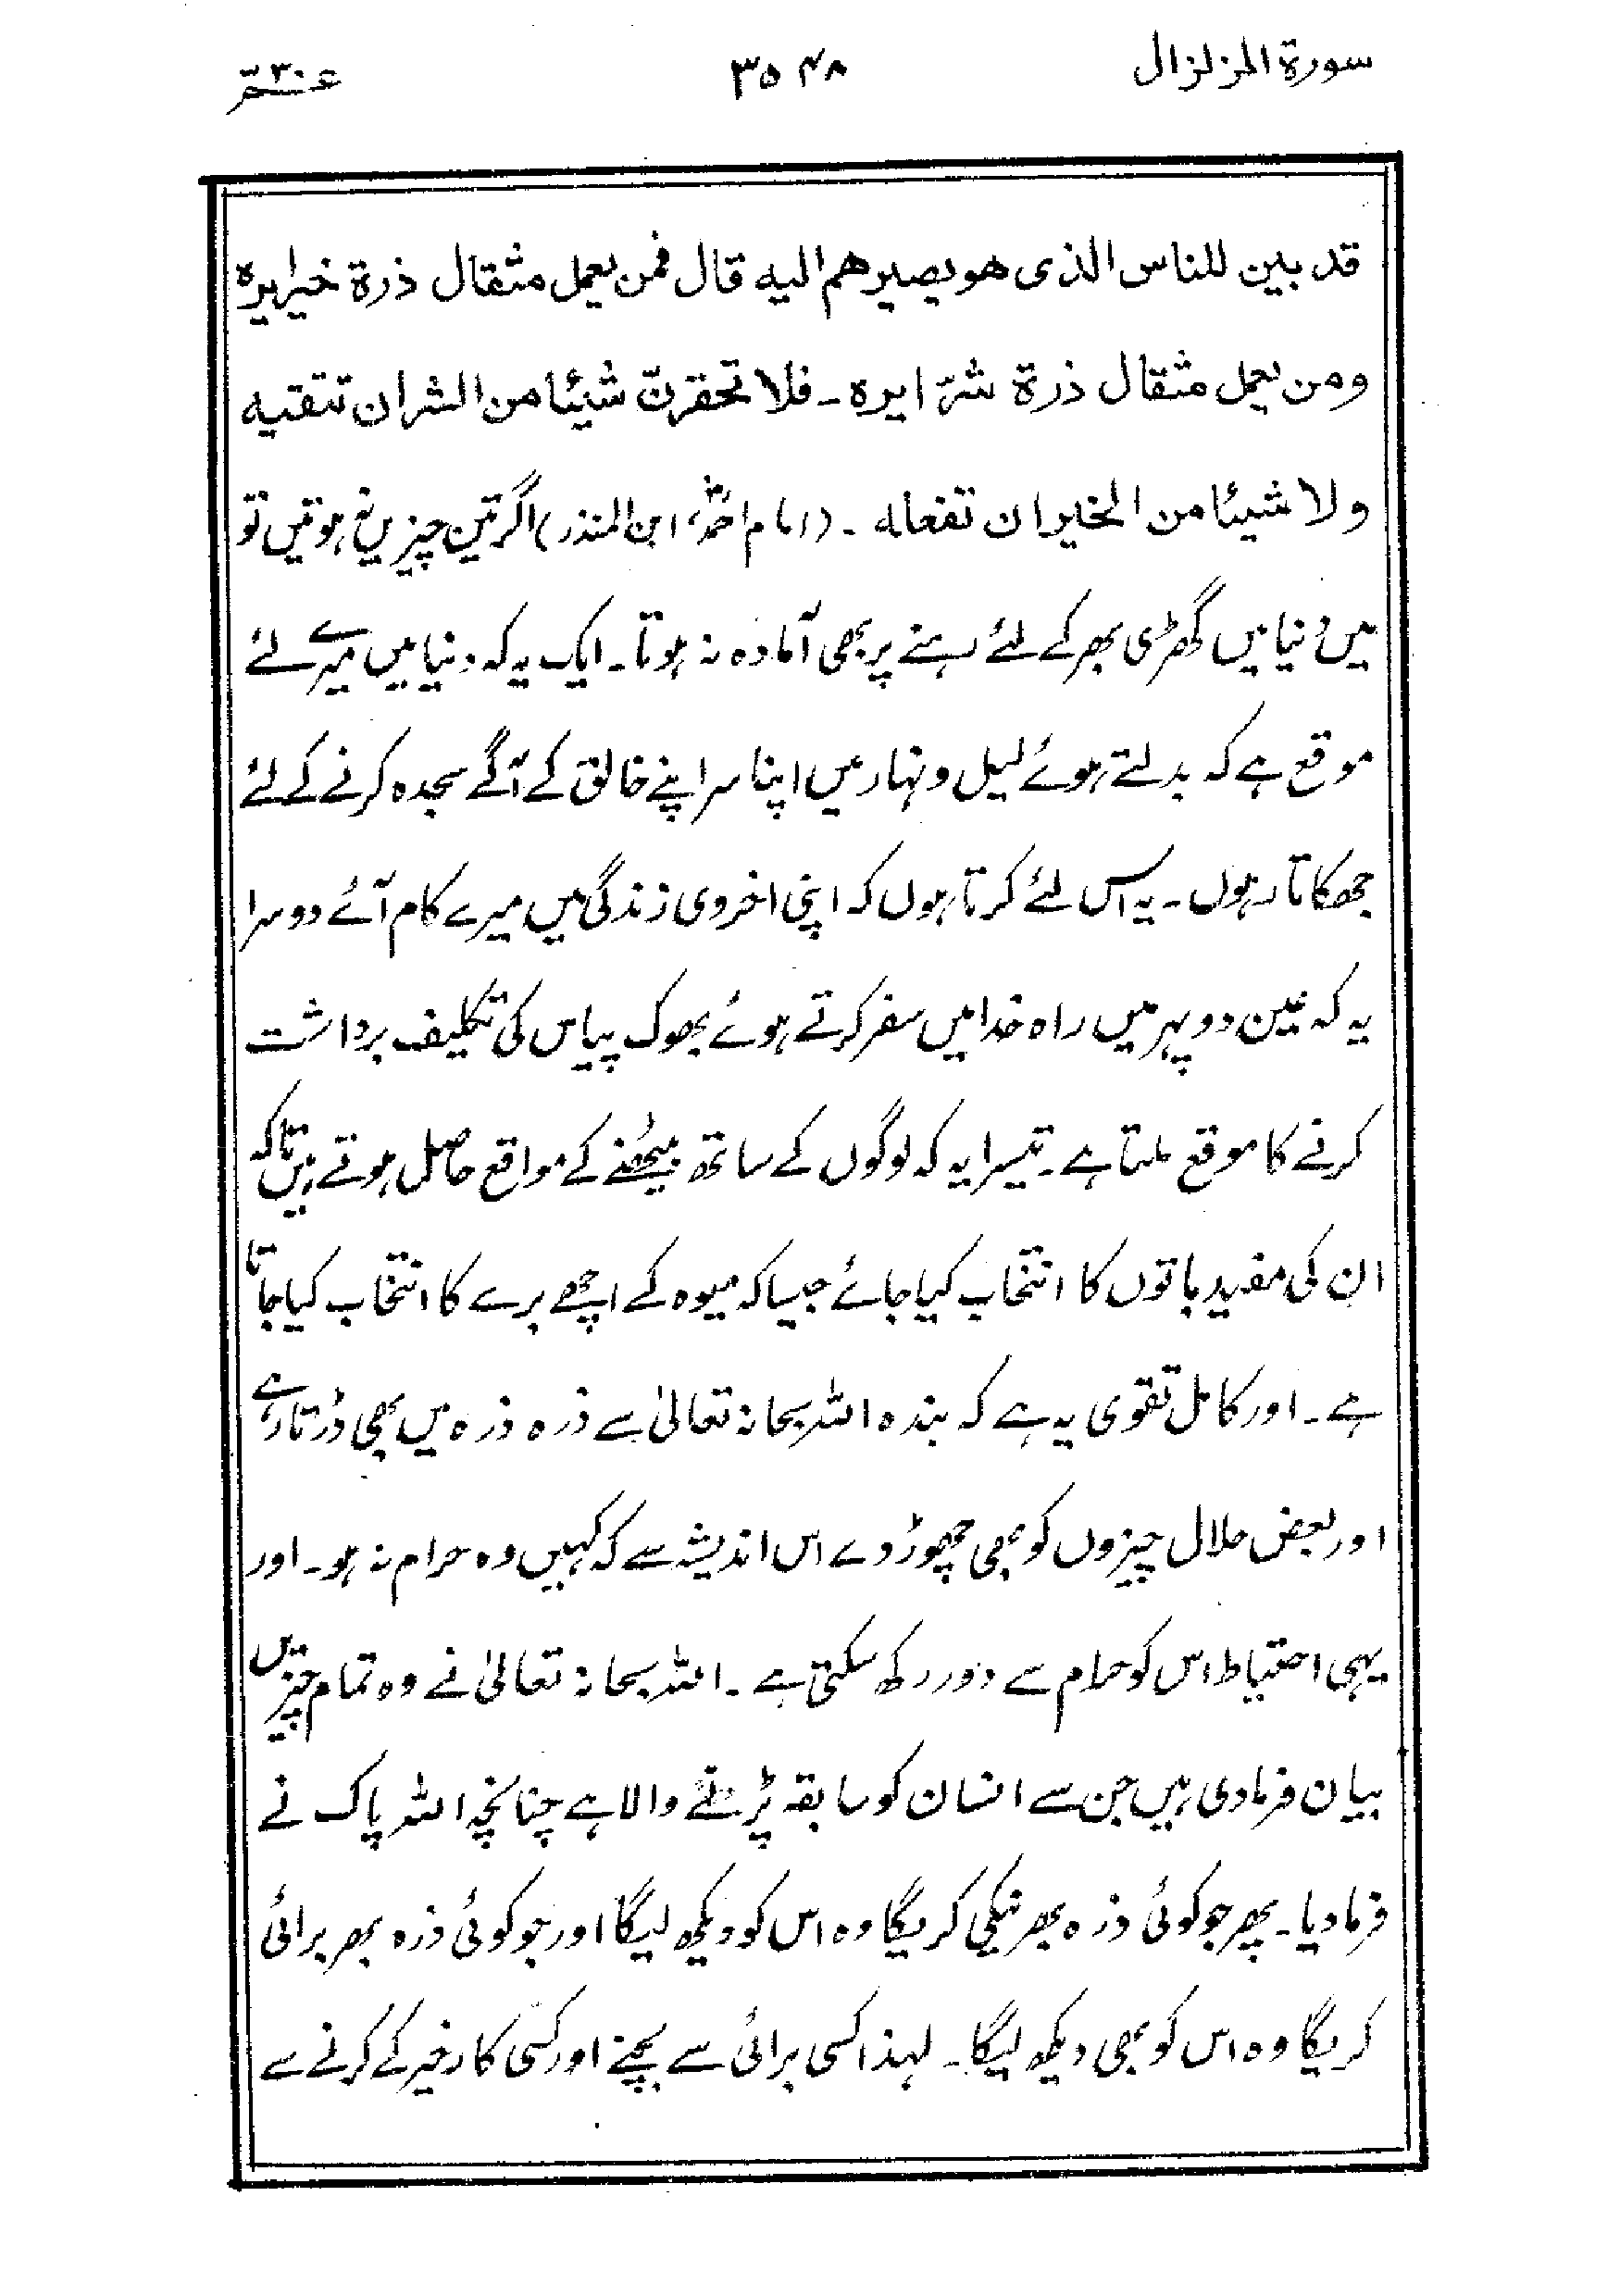 سورة الزلزال ۳۵۴۸ عم ۳۰
قد بين للناس الذى هو يصيرهم اليه قال فمن يعمل مثقال ذرة خيرا يره
ومن يعمل مثقال ذرة شرّا يره ۔ فلا تحقرنّ شيئا من الشر ان تتقيه
ولا شيئا من الخير ان تفعله ۔ (امام احمدؒ، ابن المنذر) اگر تین چیزیں نہ ہوتیں تو
میں دنیا میں گھڑی بھر کے لئے رہنے پر بھی آمادہ نہ ہوتا۔ ایک یہ کہ دنیا میں میرے لئے
موقع ہے کہ بدلتے ہوئے لیل و نہار میں اپنا سر اپنے خالق کے آگے سجدہ کرنے کے لئے
جھکاتا رہوں۔ یہ اس لئے کرتا ہوں کہ اپنی اخروی زندگی میں میرے کام آئے دوسرا
یہ کہ عین دوپہر میں راہ خدا میں سفر کرتے ہوئے بھوک پیاس کی تکلیف برداشت
کرنے کا موقع ملتا ہے۔ تیسرا یہ کہ لوگوں کے ساتھ بیٹھنے کے مواقع حاصل ہوتے ہیں تاکہ
ان کی مفید باتوں کا انتخاب کیا جائے جیسا کہ میوہ کے اچھے برے کا انتخاب کیا جاتا
ہے۔ اور کامل تقوی یہ ہے کہ بندہ اللہ سبحانہ تعالیٰ سے ذرہ ذرہ میں بھی ڈرتا رہے
اور بعض حلال چیزوں کو بھی چھوڑ دے اس اندیشہ سے کہ کہیں وہ حرام نہ ہو۔ اور
یہی احتیاط اس کو حرام سے دور رکھ سکتی ہے۔ اللہ سبحانہ تعالیٰ نے وہ تمام چیزیں
بیان فرمادی ہیں جن سے انسان کو سابقہ پڑنے والا ہے چنانچہ اللہ پاک نے
فرمادیا۔ پھر جو کوئی ذرہ بھر نیکی کریگا وہ اس کو دیکھ لیگا اور جو کوئی ذرہ بھر برائی
کریگا وہ اس کو بھی دیکھ لیگا۔ لہذا کسی برائی سے بچنے اور کسی کار خیر کے کرنے سے